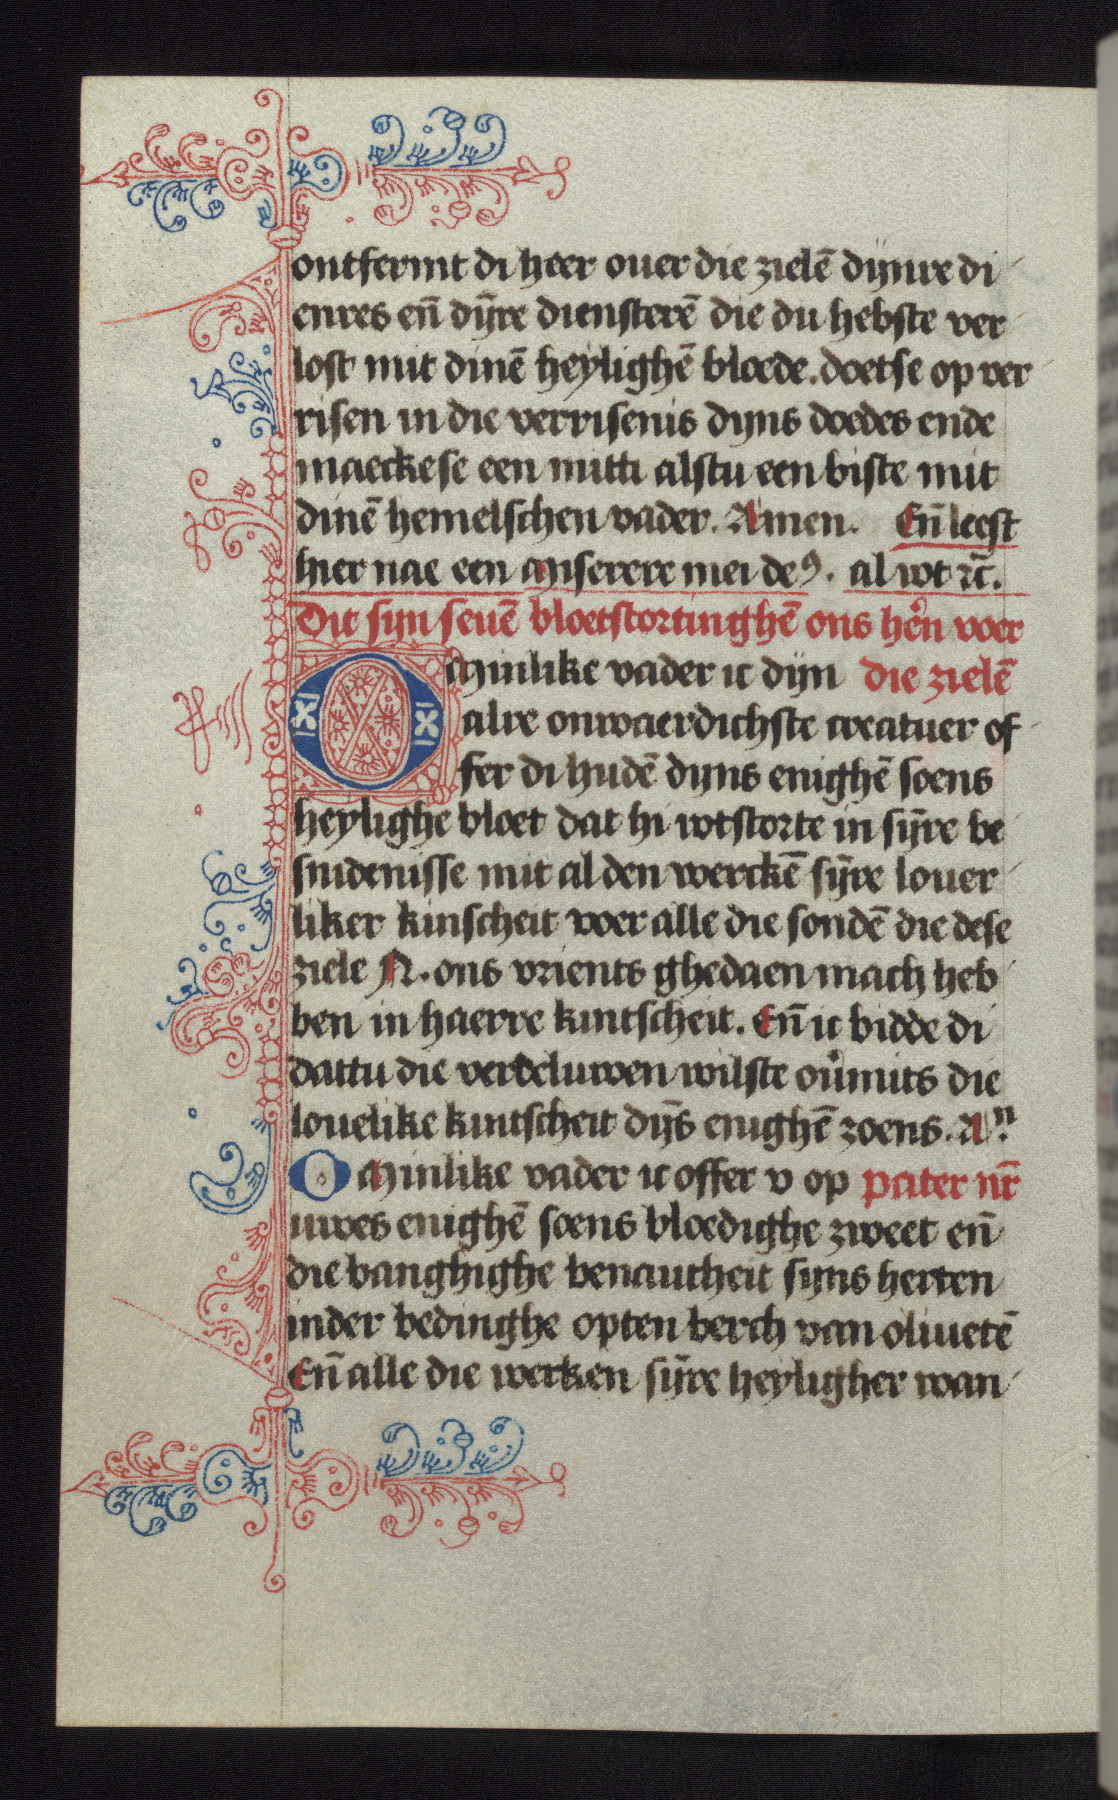 ontfermt di heer ouer die zielē dijnre di
enres eñ dȳre diensterē die du hebste ver
lost mit dinē heylighē bloede. doetse op ver
risen in die verrisenis dijns doedes ende
maeckese een mitti alstu een biste mit
dinē hemelschen vader. Amen. Eñ leest
hier nae een Miserere mei deꝰ. al wt ⁊c̄.
Dit sijn seuē bloetstortinghē ons hērn voer
O Minlike vader ic dijn die zielē
alre onwaerdichste creatuer of
fer di hudē dijns enighē soens
heylighe bloet dat hi wtstorte in sȳre be
snidenisse mit al den werckē sȳre louer
liker kinscheit voer alle die sondē die dese
ziele N. ons vrients ghedaen mach heb
ben in haerre kintscheit. Eñ ic bidde di
dattu die verdeluwen wilste ou̅mits die
louelike kintscheit dȳs enighē zoens. Aⁿ.
O Minlike vader ic offer v op pater nr̄
uwes enighē soens bloedighe zweet eñ
die banghighe benautheit sijns herten
inder bedinghe opten berch van oliuetē
Eñ alle die werken sȳre heyligher wan